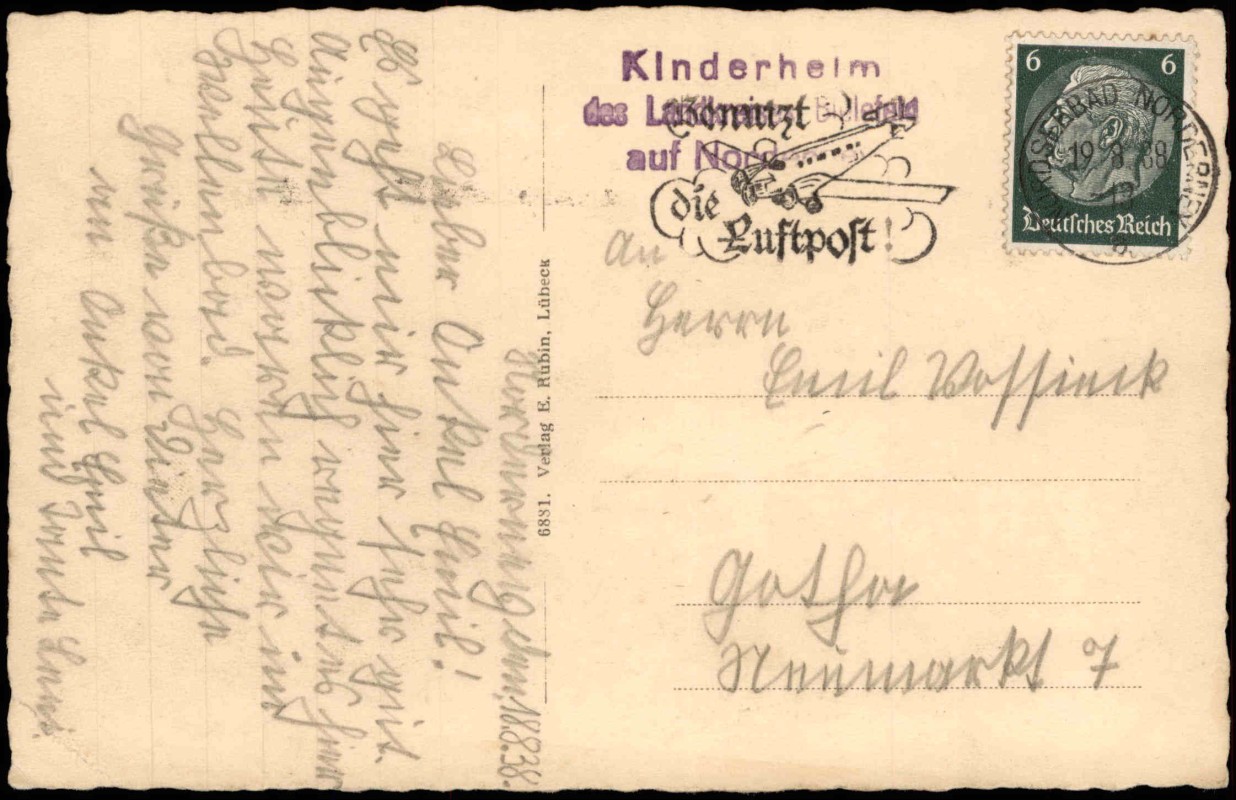 Kinderheim
des Landkreises Bielefeld
auf Norderney
Benutzt
die
Luftpost!
6 6
NORDSEEBAD NORDERNEY
19 8 38
Deutsches Reich
An
Herrn
Emil Vossieck
Gotha
Neumarkt 7
6881. Verlag E. Rubin, Lübeck
Norderney, den 18.8.38.
Lieber Onkel Emil!
Es geht mir hier sehr gut.
Augenblicklich regnet es hier
Heute waren wir im
Wellenbad. Herzliche
Grüße von Dieter
an Onkel Emil
und Tante Leni.